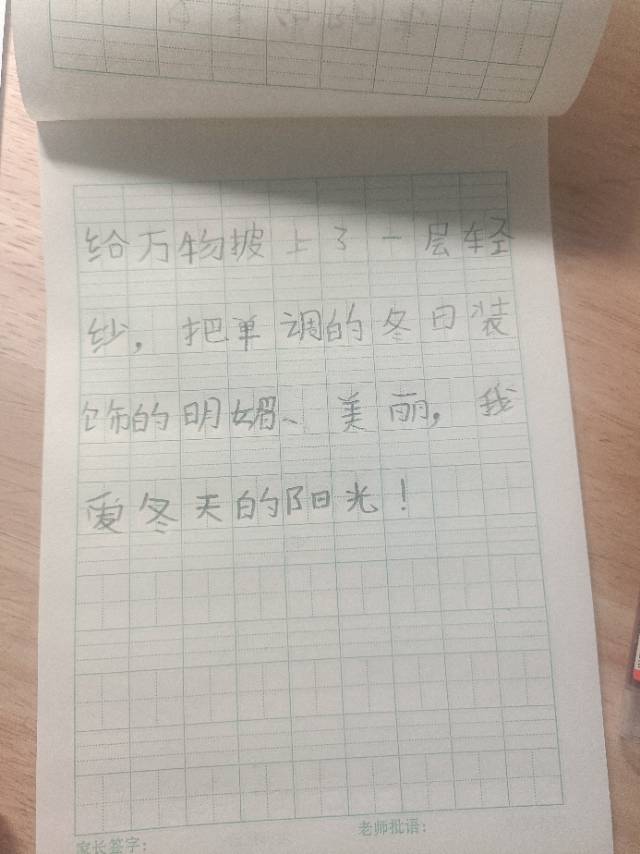 给万物披上了一层轻
纱，把单调的冬日装
饰的明媚、美丽，我
爱冬天的阳光！
老师批语：
家长签字：